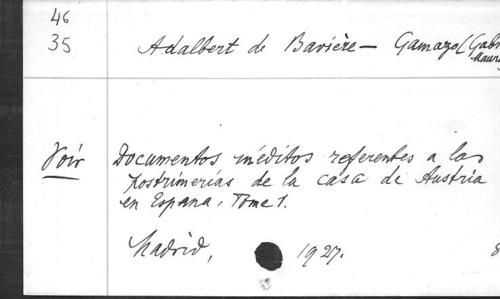 46
35
Adalbert de Bavière — Gamazo (Gabri
Maura
Voir
Documentos inéditos referentes a las
postrimerías de la casa de Austria
en España, Tome 1.
Madrid, 1927.
8